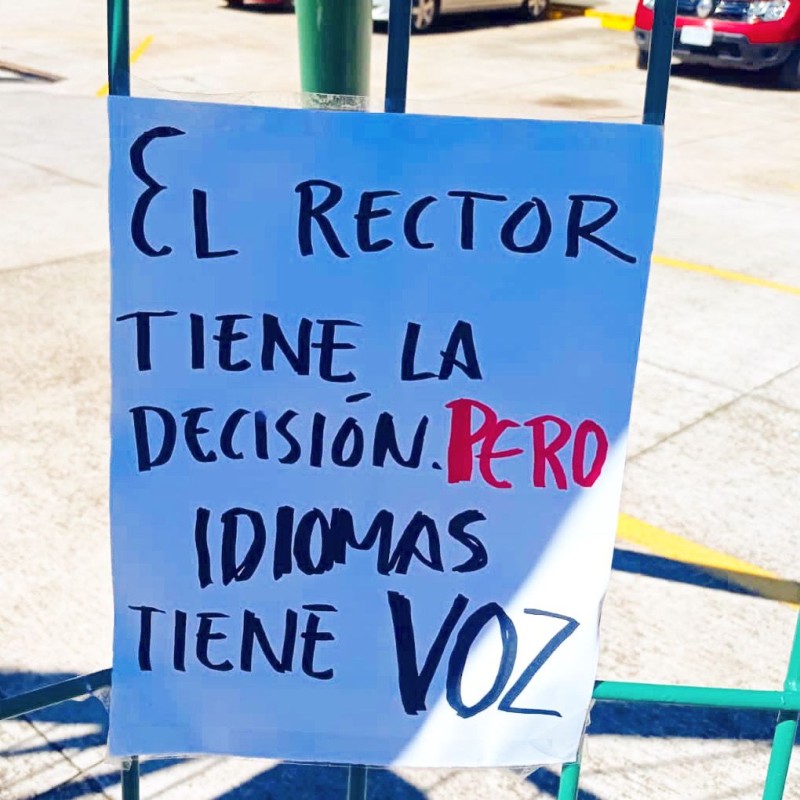 EL RECTOR
TIENE LA
DECISIÓN. PERO
IDIOMAS
TIENE VOZ